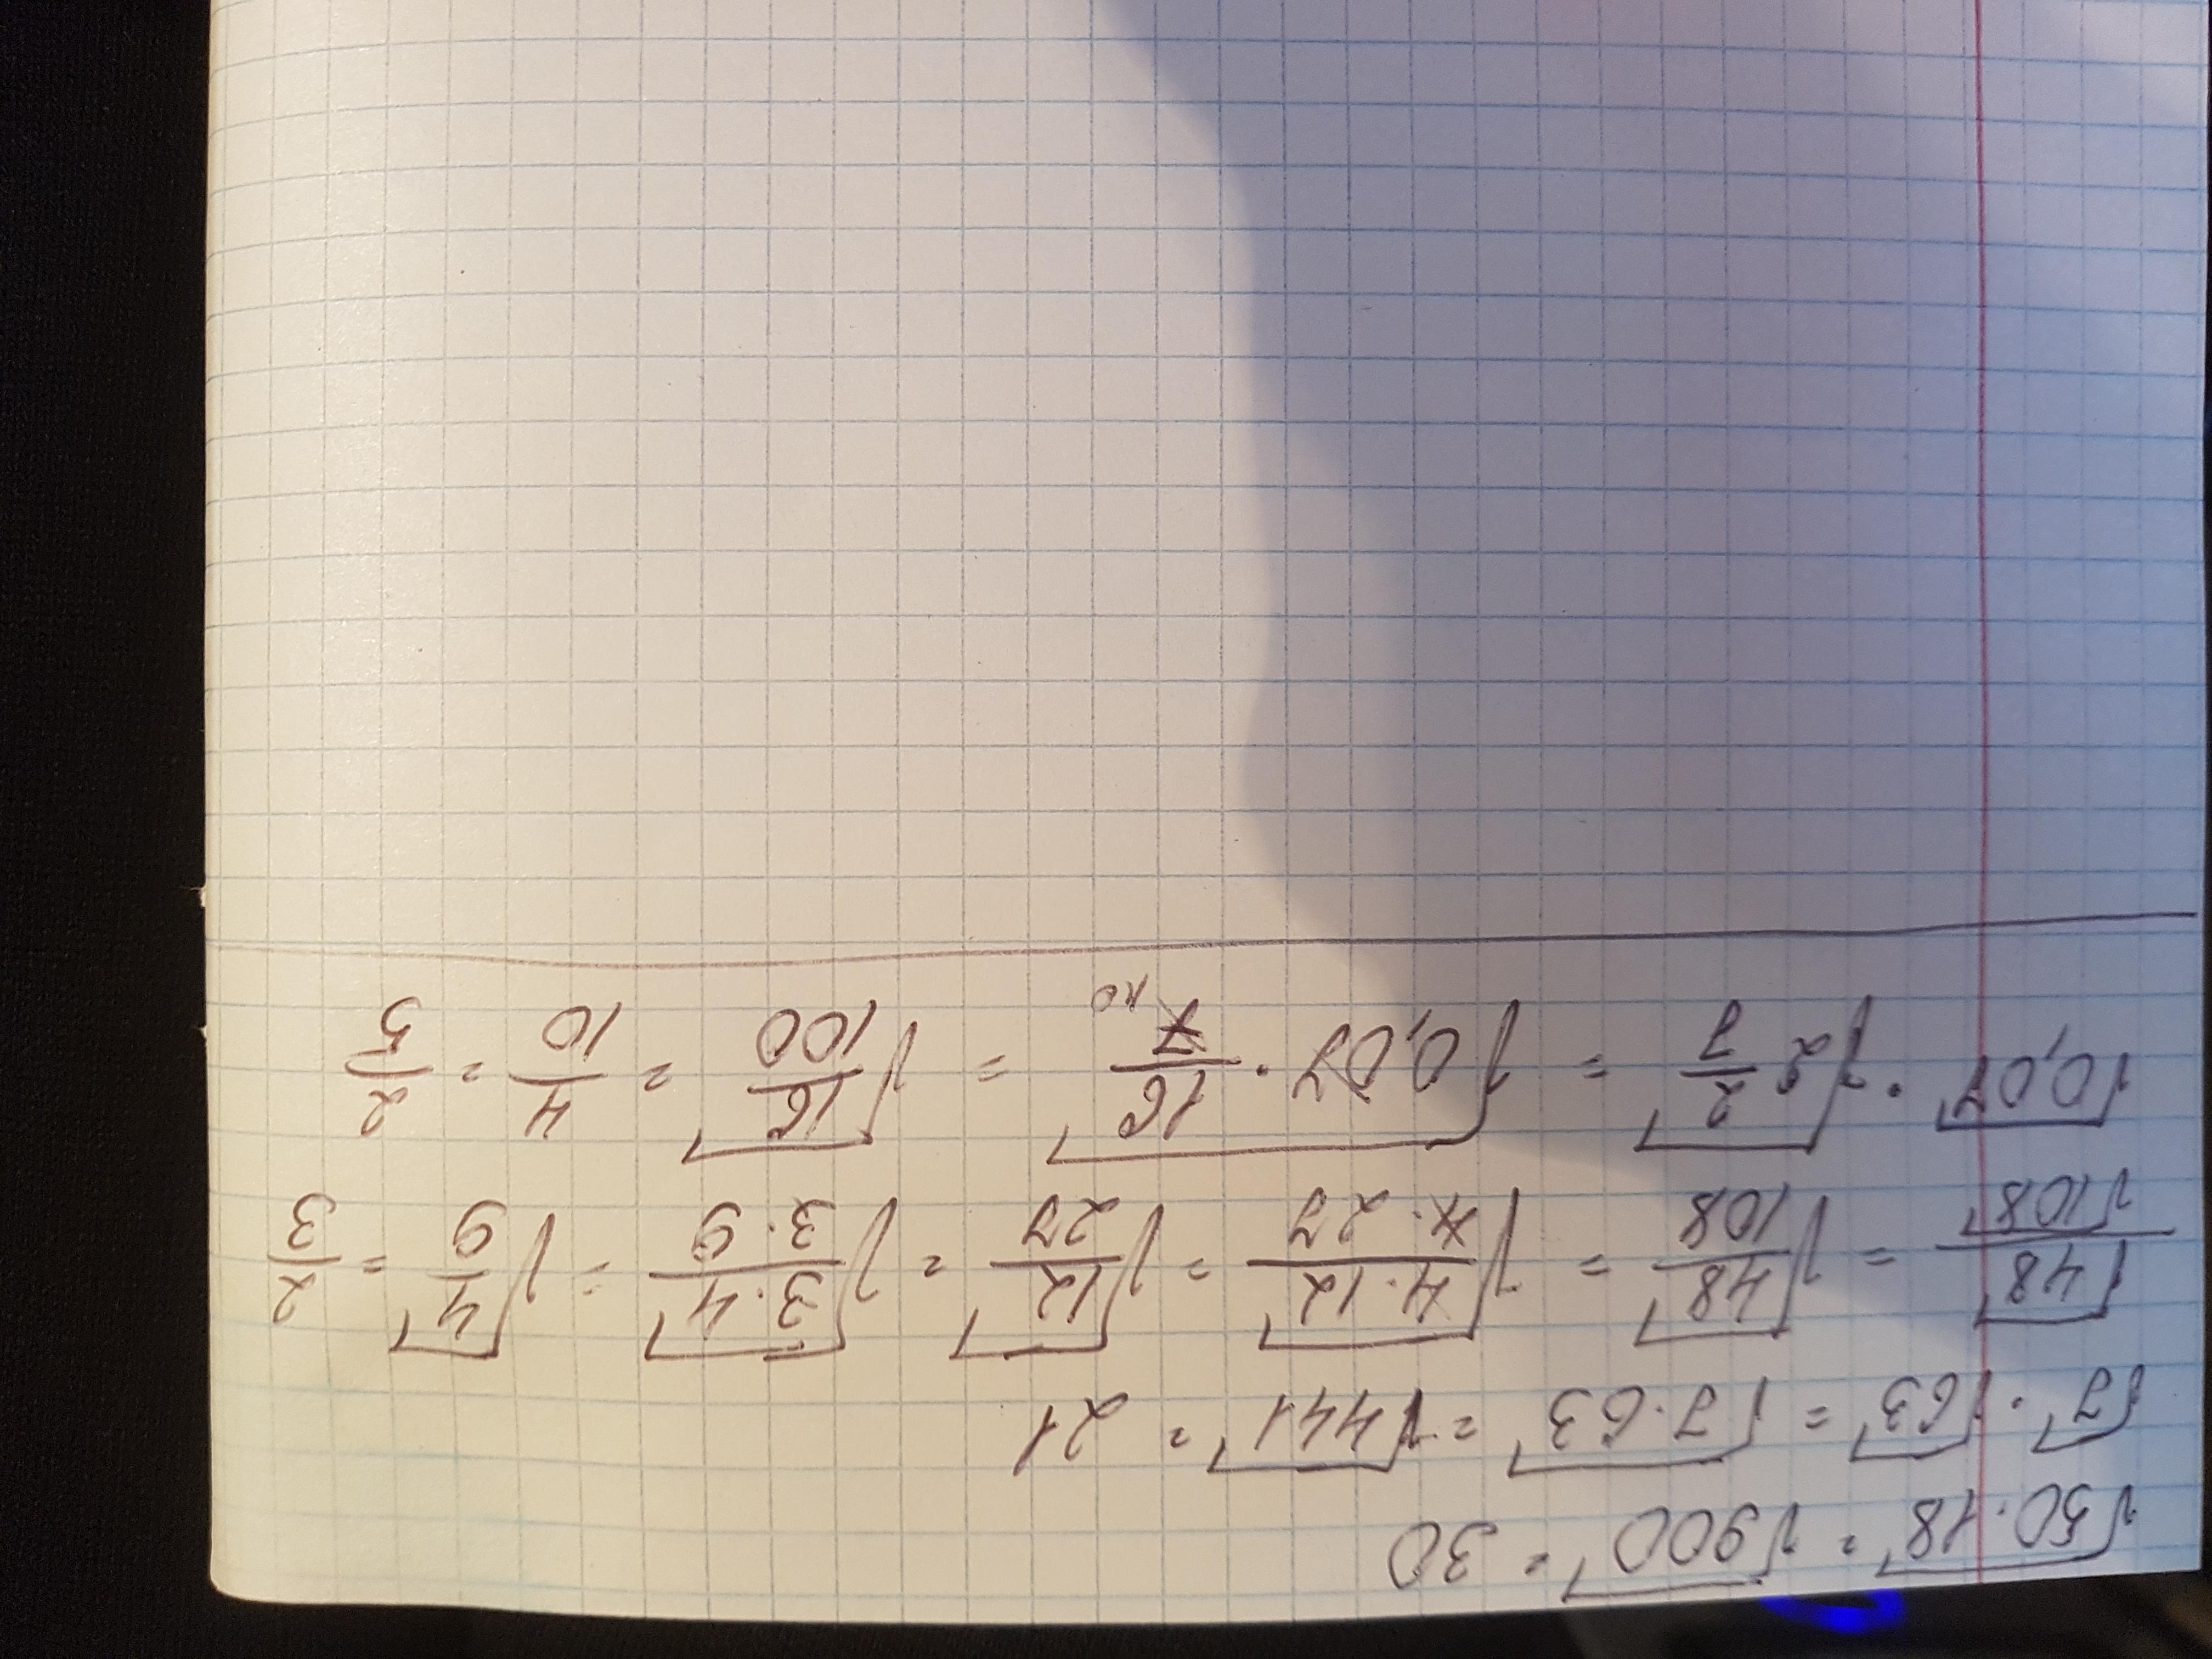 √50·18 = √900 = 30
√7 · √63 = √7·63 = √441 = 21
√48/√108 = √48/108 = √4·12/4·27 = √12/27 = √3·4/3·9 = √4/9 = 2/3
√0,07 · √2 2/7 = √0,07 · 16/7 = √16/100 = 4/10 = 2/5